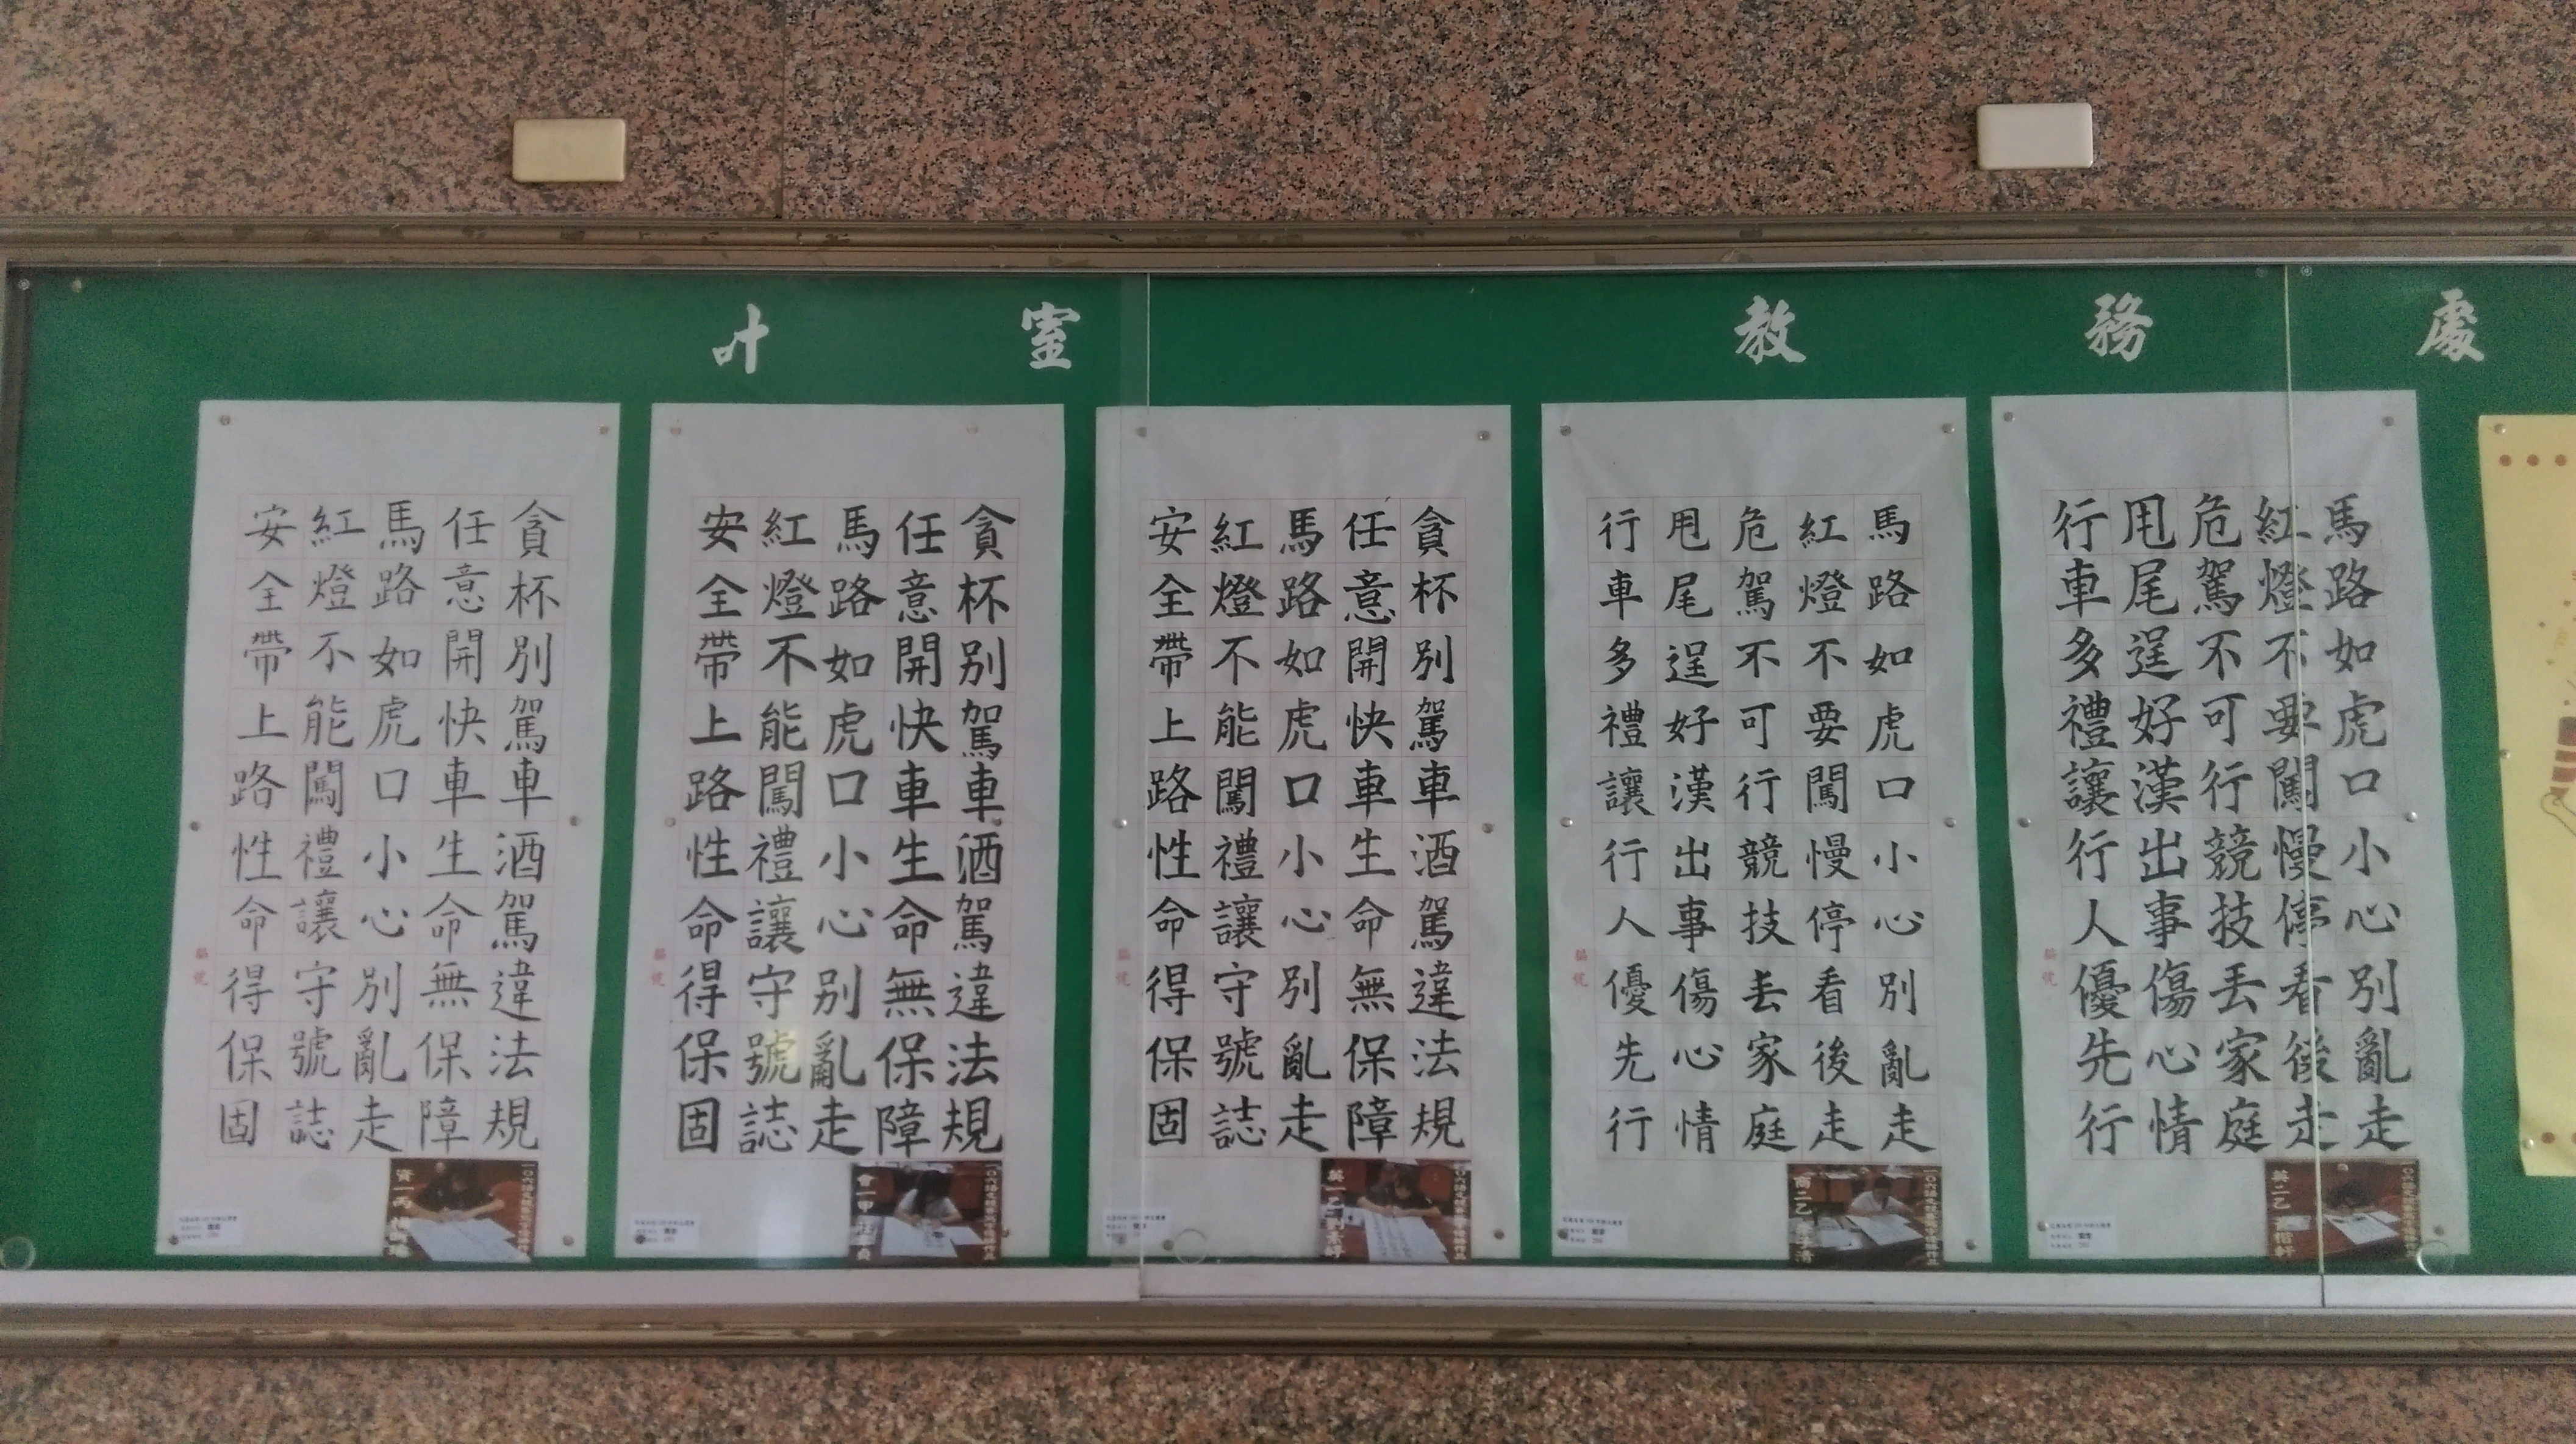 室
教務處
貪杯別駕車酒駕違法規
任意開快車生命無保障
馬路如虎口小心別亂走
紅燈不能闖禮讓守號誌
安全帶上路性命得保固
資一丙
貪杯別駕車酒駕違法規
任意開快車生命無保障
馬路如虎口小心別亂走
紅燈不能闖禮讓守號誌
安全帶上路性命得保固
會一甲
貪杯別駕車酒駕違法規
任意開快車生命無保障
馬路如虎口小心別亂走
紅燈不能闖禮讓守號誌
安全帶上路性命得保固
英一乙
馬路如虎口小心別亂走
紅燈不要闖慢停看後走
危駕不可行競技丟家庭
甩尾逞好漢出事傷心情
行車多禮讓行人優先行
商二乙
馬路如虎口小心別亂走
紅燈不要闖慢停看後走
危駕不可行競技丟家庭
甩尾逞好漢出事傷心情
行車多禮讓行人優先行
英二乙